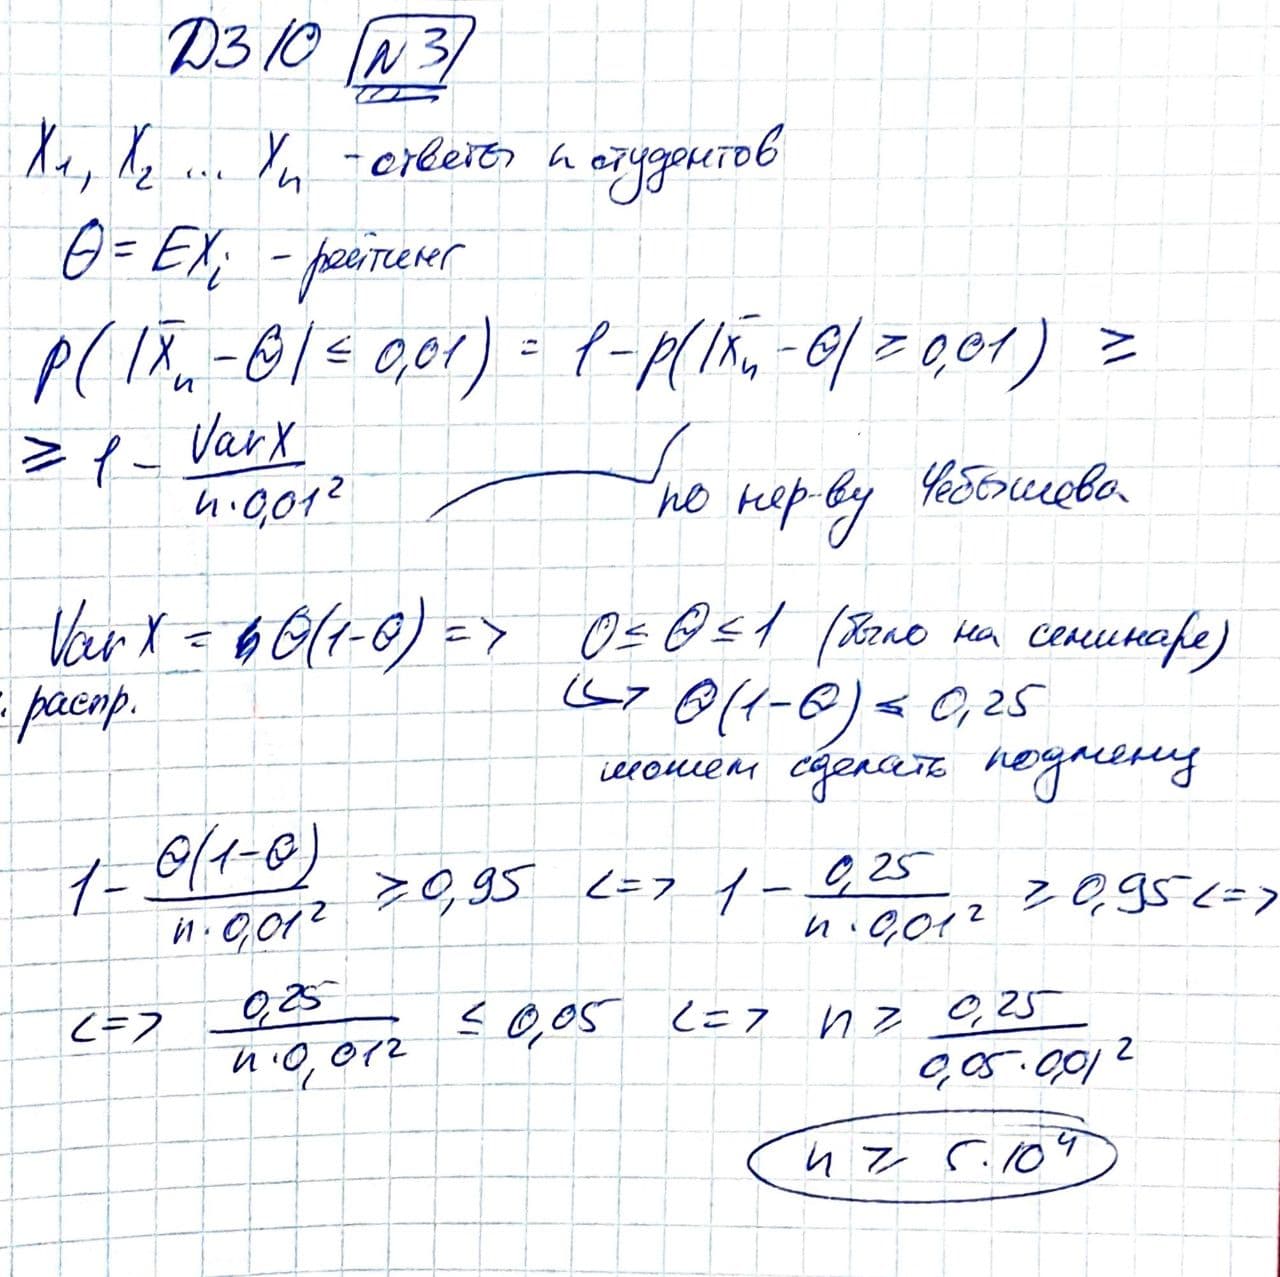 ДЗ 10 №3
X₁, X₂ ... Xₙ - ответы n студентов
Θ = EXᵢ - рейтинг
P(|X̄ₙ - Θ| ≤ 0,01) = 1 - P(|X̄ₙ - Θ| ≥ 0,01) ≥
≥ 1 - VarX / (n·0,01²)
по нер-ву Чебышева
VarX = Θ(1-Θ) => 0 ≤ Θ ≤ 1 (было на семинаре)
распр. ↳> Θ(1-Θ) ≤ 0,25
можем сделать подмену
1 - Θ(1-Θ) / (n·0,01²) ≥ 0,95 <=> 1 - 0,25 / (n·0,01²) ≥ 0,95 <=>
<=> 0,25 / (n·0,01²) ≤ 0,05 <=> n ≥ 0,25 / (0,05·0,01²)
n ≥ 5·10⁴